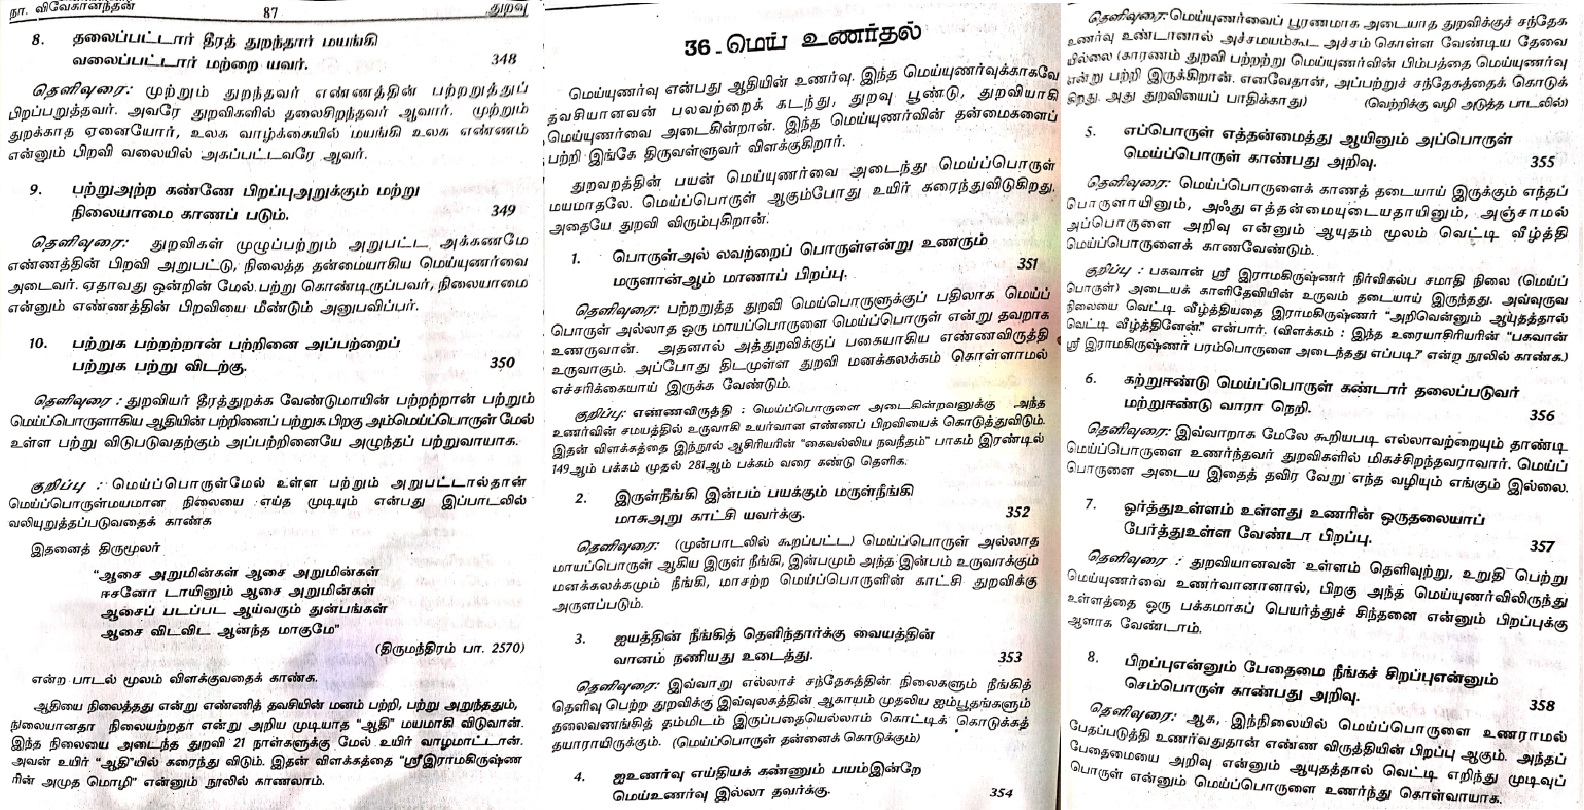 நா. விவேகானந்தன் 87 துறவு
8. தலைப்பட்டார் தீரத் துறந்தார் மயங்கி
வலைப்பட்டார் மற்றை யவர். 348
தெளிவுரை: முற்றும் துறந்தவர் எண்ணத்தின் பற்றறுத்துப்
பிறப்பறுத்தவர். அவரே துறவிகளில் தலைசிறந்தவர் ஆவார். முற்றும்
துறக்காத ஏனையோர், உலக வாழ்க்கையில் மயங்கி உலக எண்ணம்
என்னும் பிறவி வலையில் அகப்பட்டவரே ஆவர்.
9. பற்றுஅற்ற கண்ணே பிறப்புஅறுக்கும் மற்று
நிலையாமை காணப் படும். 349
தெளிவுரை: துறவிகள் முழுப்பற்றும் அறுபட்ட அக்கணமே
எண்ணத்தின் பிறவி அறுபட்டு, நிலைத்த தன்மையாகிய மெய்யுணர்வை
அடைவர். ஏதாவது ஒன்றின் மேல் பற்று கொண்டிருப்பவர், நிலையாமை
என்னும் எண்ணத்தின் பிறவியை மீண்டும் அனுபவிப்பர்.
10. பற்றுக பற்றற்றான் பற்றினை அப்பற்றைப்
பற்றுக பற்று விடற்கு. 350
தெளிவுரை : துறவியர் தீரத்துறக்க வேண்டுமாயின் பற்றற்றான் பற்றும்
மெய்ப்பொருளாகிய ஆதியின் பற்றினைப் பற்றுக. பிறகு அம்மெய்ப்பொருள் மேல்
உள்ள பற்று விடுபடுவதற்கும் அப்பற்றினையே அழுந்தப் பற்றுவாயாக.
குறிப்பு : மெய்ப்பொருள்மேல் உள்ள பற்றும் அறுபட்டால்தான்
மெய்ப்பொருள்மயமான நிலையை எய்த முடியும் என்பது இப்பாடலில்
வலியுறுத்தப்படுவதைக் காண்க
இதனைத் திருமூலர்
“ஆசை அறுமின்கள் ஆசை அறுமின்கள்
ஈசனோ டாயினும் ஆசை அறுமின்கள்
ஆசைப் படப்பட ஆய்வரும் துன்பங்கள்
ஆசை விடவிட ஆனந்த மாகுமே”
(திருமந்திரம் பா. 2570)
என்ற பாடல் மூலம் விளக்குவதைக் காண்க.
ஆதியை நிலைத்தது என்று எண்ணித் தவசியின் மனம் பற்றி, பற்று அறுந்ததும்,
நிலையானதா நிலையற்றதா என்று அறிய முடியாத “ஆதி” மயமாகி விடுவான்.
இந்த நிலையை அடைந்த துறவி 21 நாள்களுக்கு மேல் உயிர் வாழமாட்டான்.
அவன் உயிர் “ஆதி”யில் கரைந்து விடும். இதன் விளக்கத்தை “ஸ்ரீஇராமகிருஷ்ண
ரின் அமுத மொழி” என்னும் நூலில் காணலாம்.
36 - மெய் உணர்தல்
மெய்யுணர்வு என்பது ஆதியின் உணர்வு. இந்த மெய்யுணர்வுக்காகவே
தவசியானவன் பலவற்றைக் கடந்து, துறவு பூண்டு, துறவியாகி
மெய்யுணர்வை அடைகின்றான். இந்த மெய்யுணர்வின் தன்மைகளைப்
பற்றி இங்கே திருவள்ளுவர் விளக்குகிறார்.
துறவறத்தின் பயன் மெய்யுணர்வை அடைந்து மெய்ப்பொருள்
மயமாதலே. மெய்ப்பொருள் ஆகும்போது உயிர் கரைந்துவிடுகிறது.
அதையே துறவி விரும்புகிறான்.
1. பொருள்அல் லவற்றைப் பொருள்என்று உணரும்
மருளான்ஆம் மாணாப் பிறப்பு. 351
தெளிவுரை: பற்றறுத்த துறவி மெய்பொருளுக்குப் பதிலாக மெய்ப்
பொருள் அல்லாத ஒரு மாயப்பொருளை மெய்ப்பொருள் என்று தவறாக
உணருவான். அதனால் அத்துறவிக்குப் பகையாகிய எண்ணவிருத்தி
உருவாகும். அப்போது திடமுள்ள துறவி மனக்கலக்கம் கொள்ளாமல்
எச்சரிக்கையாய் இருக்க வேண்டும்.
குறிப்பு: எண்ணவிருத்தி : மெய்ப்பொருளை அடைகின்றவனுக்கு அந்த
உணர்வின் சமயத்தில் உருவாகி உயர்வான எண்ணப் பிறவியைக் கொடுத்துவிடும்.
இதன் விளக்கத்தை இந்நூல் ஆசிரியரின் “கைவல்லிய நவநீதம்” பாகம் இரண்டில்
149ஆம் பக்கம் முதல் 281ஆம் பக்கம் வரை கண்டு தெளிக.
2. இருள்நீங்கி இன்பம் பயக்கும் மருள்நீங்கி
மாசுஅறு காட்சி யவர்க்கு. 352
தெளிவுரை: (முன்பாடலில் கூறப்பட்ட) மெய்ப்பொருள் அல்லாத
மாயப்பொருள் ஆகிய இருள் நீங்கி, இன்பமும் அந்த இன்பம் உருவாக்கும்
மனக்கலக்கமும் நீங்கி, மாசற்ற மெய்ப்பொருளின் காட்சி துறவிக்கு
அருளப்படும்.
3. ஐயத்தின் நீங்கித் தெளிந்தார்க்கு வையத்தின்
வானம் நணியது உடைத்து. 353
தெளிவுரை: இவ்வாறு எல்லாச் சந்தேகத்தின் நிலைகளும் நீங்கித்
தெளிவு பெற்ற துறவிக்கு இவ்வுலகத்தின் ஆகாயம் முதலிய ஐம்பூதங்களும்
தலைவணங்கித் தம்மிடம் இருப்பதையெல்லாம் கொட்டிக் கொடுக்கத்
தயாராயிருக்கும். (மெய்ப்பொருள் தன்னைக் கொடுக்கும்)
4. ஐஉணர்வு எய்தியக் கண்ணும் பயம்இன்றே
மெய்உணர்வு இல்லா தவர்க்கு. 354
தெளிவுரை: மெய்யுணர்வைப் பூரணமாக அடையாத துறவிக்குச் சந்தேக
உணர்வு உண்டானால் அச்சமயம்கூட அச்சம் கொள்ள வேண்டிய தேவை
யில்லை (காரணம் துறவி பற்றற்று மெய்யுணர்வின் பிம்பத்தை மெய்யுணர்வு
என்று பற்றி இருக்கிறான். எனவேதான், அப்பற்றுச் சந்தேகத்தைக் கொடுக்
கிறது. அது துறவியைப் பாதிக்காது) (வெற்றிக்கு வழி அடுத்த பாடலில்)
5. எப்பொருள் எத்தன்மைத்து ஆயினும் அப்பொருள்
மெய்ப்பொருள் காண்பது அறிவு. 355
தெளிவுரை: மெய்ப்பொருளைக் காணத் தடையாய் இருக்கும் எந்தப்
பொருளாயினும், அஃது எத்தன்மையுடையதாயினும், அஞ்சாமல்
அப்பொருளை அறிவு என்னும் ஆயுதம் மூலம் வெட்டி வீழ்த்தி
மெய்ப்பொருளைக் காணவேண்டும்.
குறிப்பு : பகவான் ஸ்ரீ இராமகிருஷ்ணர் நிர்விகல்ப சமாதி நிலை (மெய்ப்
பொருள்) அடையக் காளிதேவியின் உருவம் தடையாய் இருந்தது. அவ்வுருவ
நிலையை வெட்டி வீழ்த்தியதை இராமகிருஷ்ணர் “அறிவென்னும் ஆயுதத்தால்
வெட்டி வீழ்த்தினேன்.” என்பார். (விளக்கம் : இந்த உரையாசிரியரின் “பகவான்
ஸ்ரீ இராமகிருஷ்ணர் பரம்பொருளை அடைந்தது எப்படி?” என்ற நூலில் காண்க.)
6. கற்றுஈண்டு மெய்ப்பொருள் கண்டார் தலைப்படுவர்
மற்றுஈண்டு வாரா நெறி. 356
தெளிவுரை: இவ்வாறாக மேலே கூறியபடி எல்லாவற்றையும் தாண்டி
மெய்ப்பொருளை உணர்ந்தவர் துறவிகளில் மிகச்சிறந்தவராவார். மெய்ப்
பொருளை அடைய இதைத் தவிர வேறு எந்த வழியும் எங்கும் இல்லை.
7. ஓர்த்துஉள்ளம் உள்ளது உணரின் ஒருதலையாப்
பேர்த்துஉள்ள வேண்டா பிறப்பு. 357
தெளிவுரை : துறவியானவன் உள்ளம் தெளிவுற்று, உறுதி பெற்று
மெய்யுணர்வை உணர்வானானால், பிறகு அந்த மெய்யுணர்விலிருந்து
உள்ளத்தை ஒரு பக்கமாகப் பெயர்த்துச் சிந்தனை என்னும் பிறப்புக்கு
ஆளாக வேண்டாம்.
8. பிறப்புஎன்னும் பேதைமை நீங்கச் சிறப்புஎன்னும்
செம்பொருள் காண்பது அறிவு. 358
தெளிவுரை: ஆக, இந்நிலையில் மெய்ப்பொருளை உணராமல்
பேதப்படுத்தி உணர்வதுதான் எண்ண விருத்தியின் பிறப்பு ஆகும். அந்தப்
பேதைமையை அறிவு என்னும் ஆயுதத்தால் வெட்டி எறிந்து முடிவுப்
பொருள் என்னும் மெய்ப்பொருளை உணர்ந்து கொள்வாயாக.